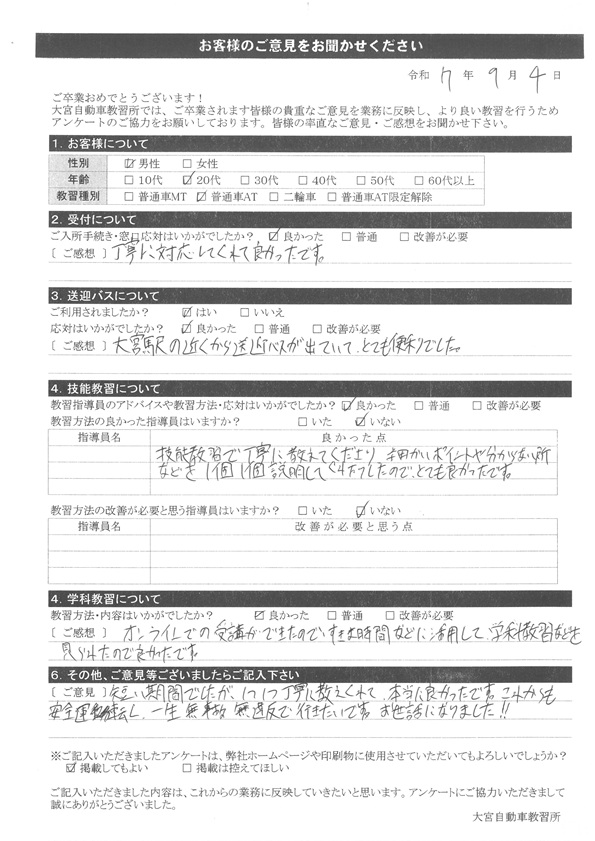 お客様のご意見をお聞かせください
令和 7 年 9 月 4 日
ご卒業おめでとうございます！
大宮自動車教習所では、ご卒業されます皆様の貴重なご意見を業務に反映し、より良い教習を行うため
アンケートのご協力をお願いしております。皆様の率直なご意見・ご感想をお聞かせ下さい。
1. お客様について
性別 ☑ 男性 □ 女性
年齢 □ 10代 ☑ 20代 □ 30代 □ 40代 □ 50代 □ 60代以上
教習種別 □ 普通車MT ☑ 普通車AT □ 二輪車 □ 普通車AT限定解除
2. 受付について
ご入所手続き・窓口応対はいかがでしたか？ ☑ 良かった □ 普通 □ 改善が必要
〔 ご感想 〕丁寧に対応してくれて良かったです。
3. 送迎バスについて
ご利用されましたか？ ☑ はい □ いいえ
応対はいかがでしたか？ ☑ 良かった □ 普通 □ 改善が必要
〔 ご感想 〕大宮駅の近くから送迎バスが出ていて、とても便利でした。
4. 技能教習について
教習指導員のアドバイスや教習方法・応対はいかがでしたか？ ☑ 良かった □ 普通 □ 改善が必要
教習方法の良かった指導員はいますか？ □ いた ☑ いない
指導員名 良かった点
技能教習で丁寧に教えてくださり 細かいポイントや分からない所
などを1個1個説明してくださったので、とても良かったです。
教習方法の改善が必要と思う指導員はいますか？ □ いた ☑ いない
指導員名 改善が必要と思う点
4. 学科教習について
教習方法・内容はいかがでしたか？ ☑ 良かった □ 普通 □ 改善が必要
〔 ご感想 〕オンラインでの受講ができたので、すきま時間などに活用して、学科教習などを
見られたので良かったです
6. その他、ご意見等ございましたらご記入下さい
〔 ご意見 〕短い期間でしたが、1つ1つ丁寧に教えてくれて、本当に良かったです。これからも
安全運転し、一生無事故 無違反で行きたいです。お世話になりました!!
※ご記入いただきましたアンケートは、弊社ホームページや印刷物に使用させていただいてもよろしいでしょうか？
☑ 掲載してもよい □ 掲載は控えてほしい
ご記入いただきました内容は、これからの業務に反映していきたいと思います。アンケートにご協力いただきまして
誠にありがとうございました。
大宮自動車教習所